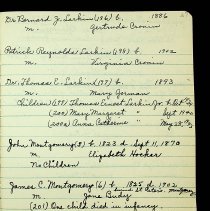 Dr. Bernard J. Larkin (196) b. 1886
m. Gertrude Cronin
Patrick Reynolds Larkin (198) b. 1902
m. Virginia Cronin
Dr. Thomas E. Larkin (197) b. 1893
m. Mary Gorman
Children (199) Thomas Ernest Larkin Jr. b.
(200) Mary Margaret " Sept 1920
(200a) Anna Catherine " May
John Montgomery (5) b. 1823 d. Sept 11, 1890
m. Elizabeth Hooker
No Children
James C. Montgomery (6) b. 1825 d. 1902
m. Jane Busby
(201) One child died in infancy.